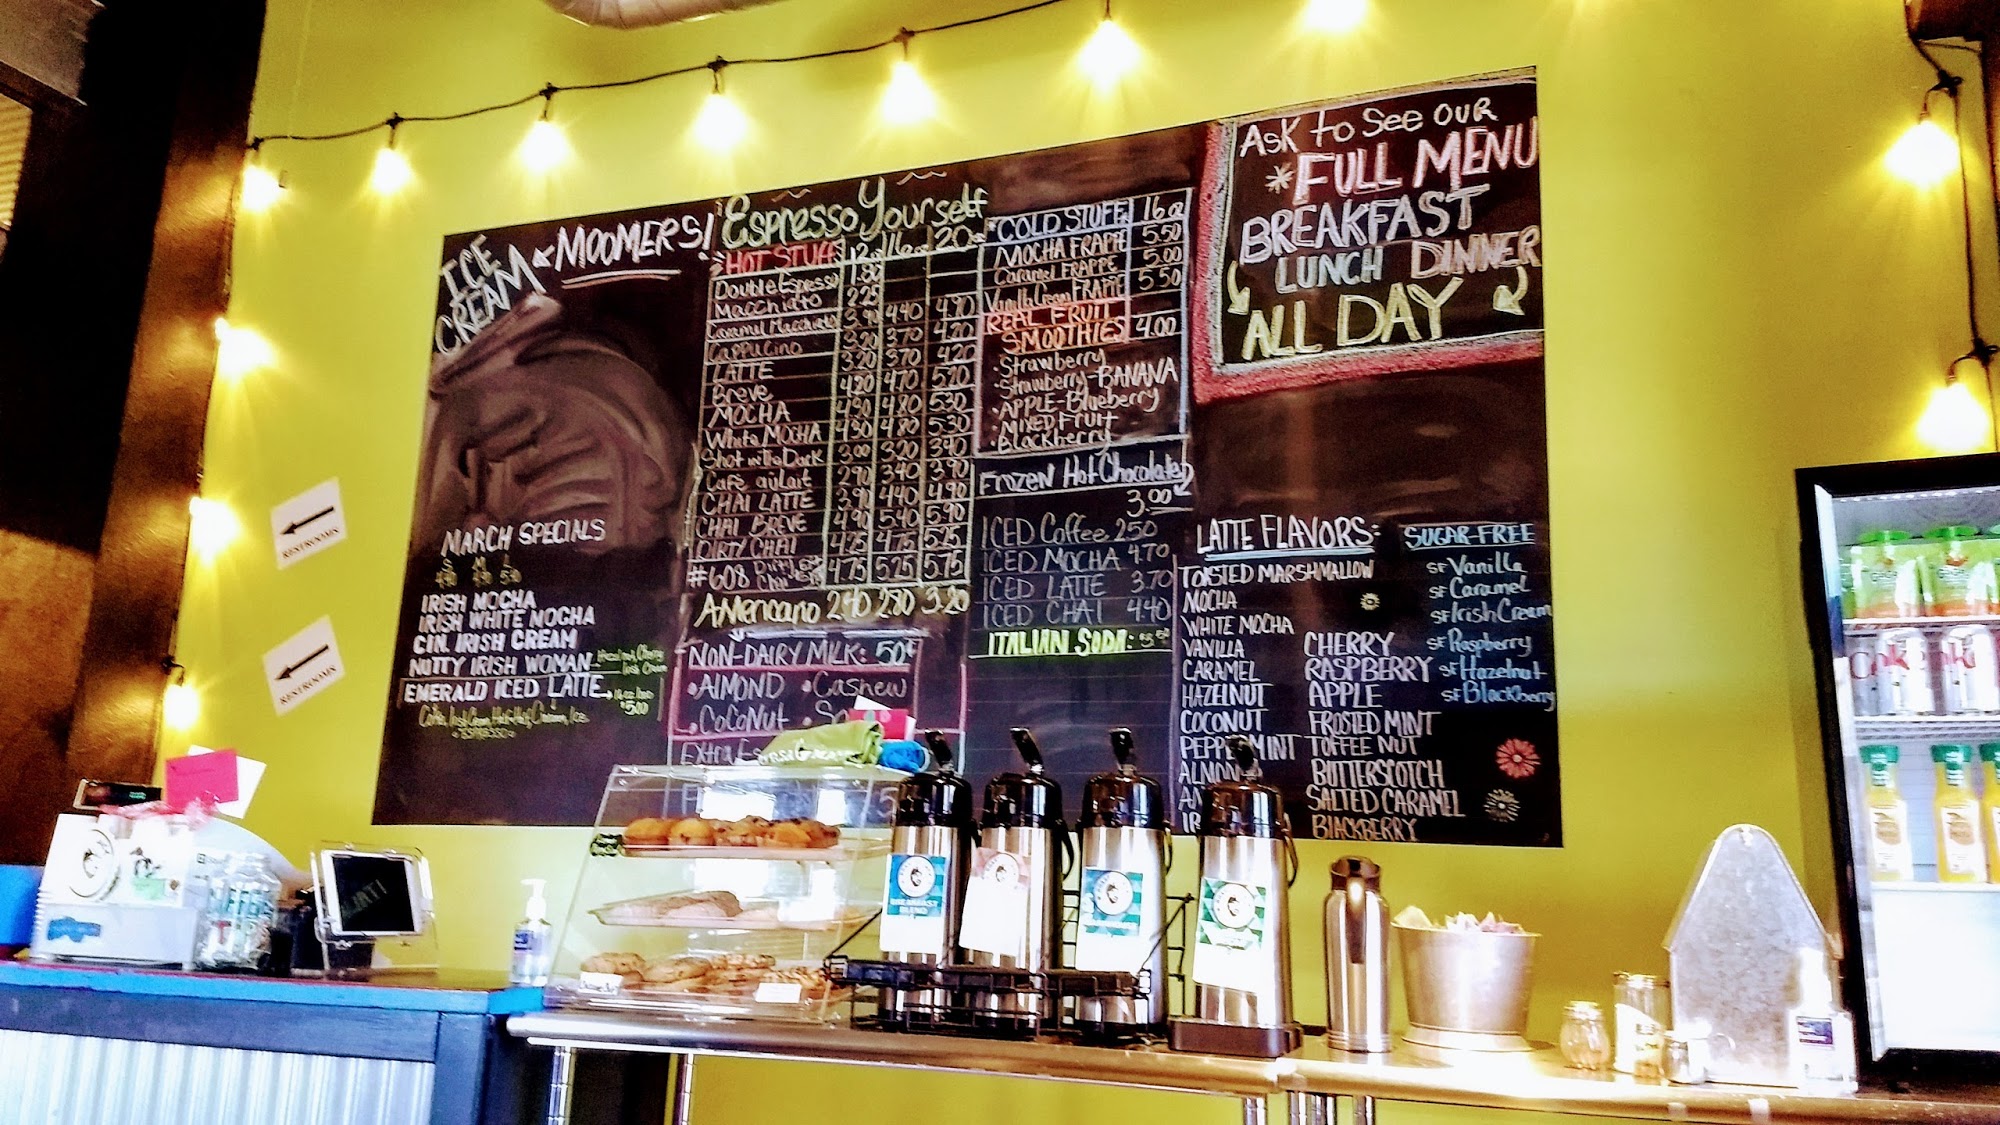 ICE
CREAM
MOOMERS!
MARCH SPECIALS
S M L
IRISH MOCHA
IRISH WHITE MOCHA
CIN. IRISH CREAM
NUTTY IRISH WOMAN Hazelnut, Cherry
Irish Cream
EMERALD ICED LATTE
$5.00
ESPRESSO
Espresso Yourself
HOT STUFF 12oz 16oz 20oz
Double Espresso 1.80
Macchiato 2.25
Caramel Macchiato 3.90 4.40 4.90
Cappucino 3.20 3.70 4.20
LATTE 3.20 3.70 4.20
Breve 4.20 4.70 5.20
MOCHA 4.30 4.80 5.30
White MOCHA 4.30 4.80 5.30
Shot in the Dark 3.00 3.20 3.40
Cafe au Lait 2.90 3.40 3.90
CHAI LATTE 3.90 4.40 4.90
CHAI BREVE 4.90 5.40 5.90
DIRTY CHAI 4.25 4.75 5.25
#608 Dirty Chai 4.75 5.25 5.75
AMericano 2.40 2.80 3.20
NON-DAIRY MILK: 50¢
•ALMOND •Cashew
•CoCoNut
COLD STUFF 16oz
MOCHA FRAPPE 5.50
Caramel FRAPPE 5.00
Vanilla Cream FRAPPE 5.50
REAL FRUIT
SMOOTHIES 4.00
•Strawberry
•Strawberry-BANANA
•APPLE-Blueberry
•MIXED FRUIT
•Blackberry
Frozen Hot Chocolate
3.00
ICED Coffee 2.50
ICED MOCHA 4.70
ICED LATTE 3.70
ICED CHAI 4.40
ITALIAN SODA:
ASK to See OUR
*FULL MENU
BREAKFAST
LUNCH DINNER
ALL DAY
LATTE FLAVORS:
TOASTED MARSHMALLOW
MOCHA
WHITE MOCHA
VANILLA
CARAMEL
HAZELNUT
COCONUT
PEPPERMINT
CHERRY
RASPBERRY
APPLE
FROSTED MINT
TOFFEE NUT
BUTTERSCOTCH
SALTED CARAMEL
BLACKBERRY
SUGAR-FREE
SF Vanilla
SF Caramel
SF Irish Cream
SF Raspberry
SF Hazelnut
SF Blackberry
RESTROOMS
RESTROOMS
BREAKFAST
BLEND
Coke